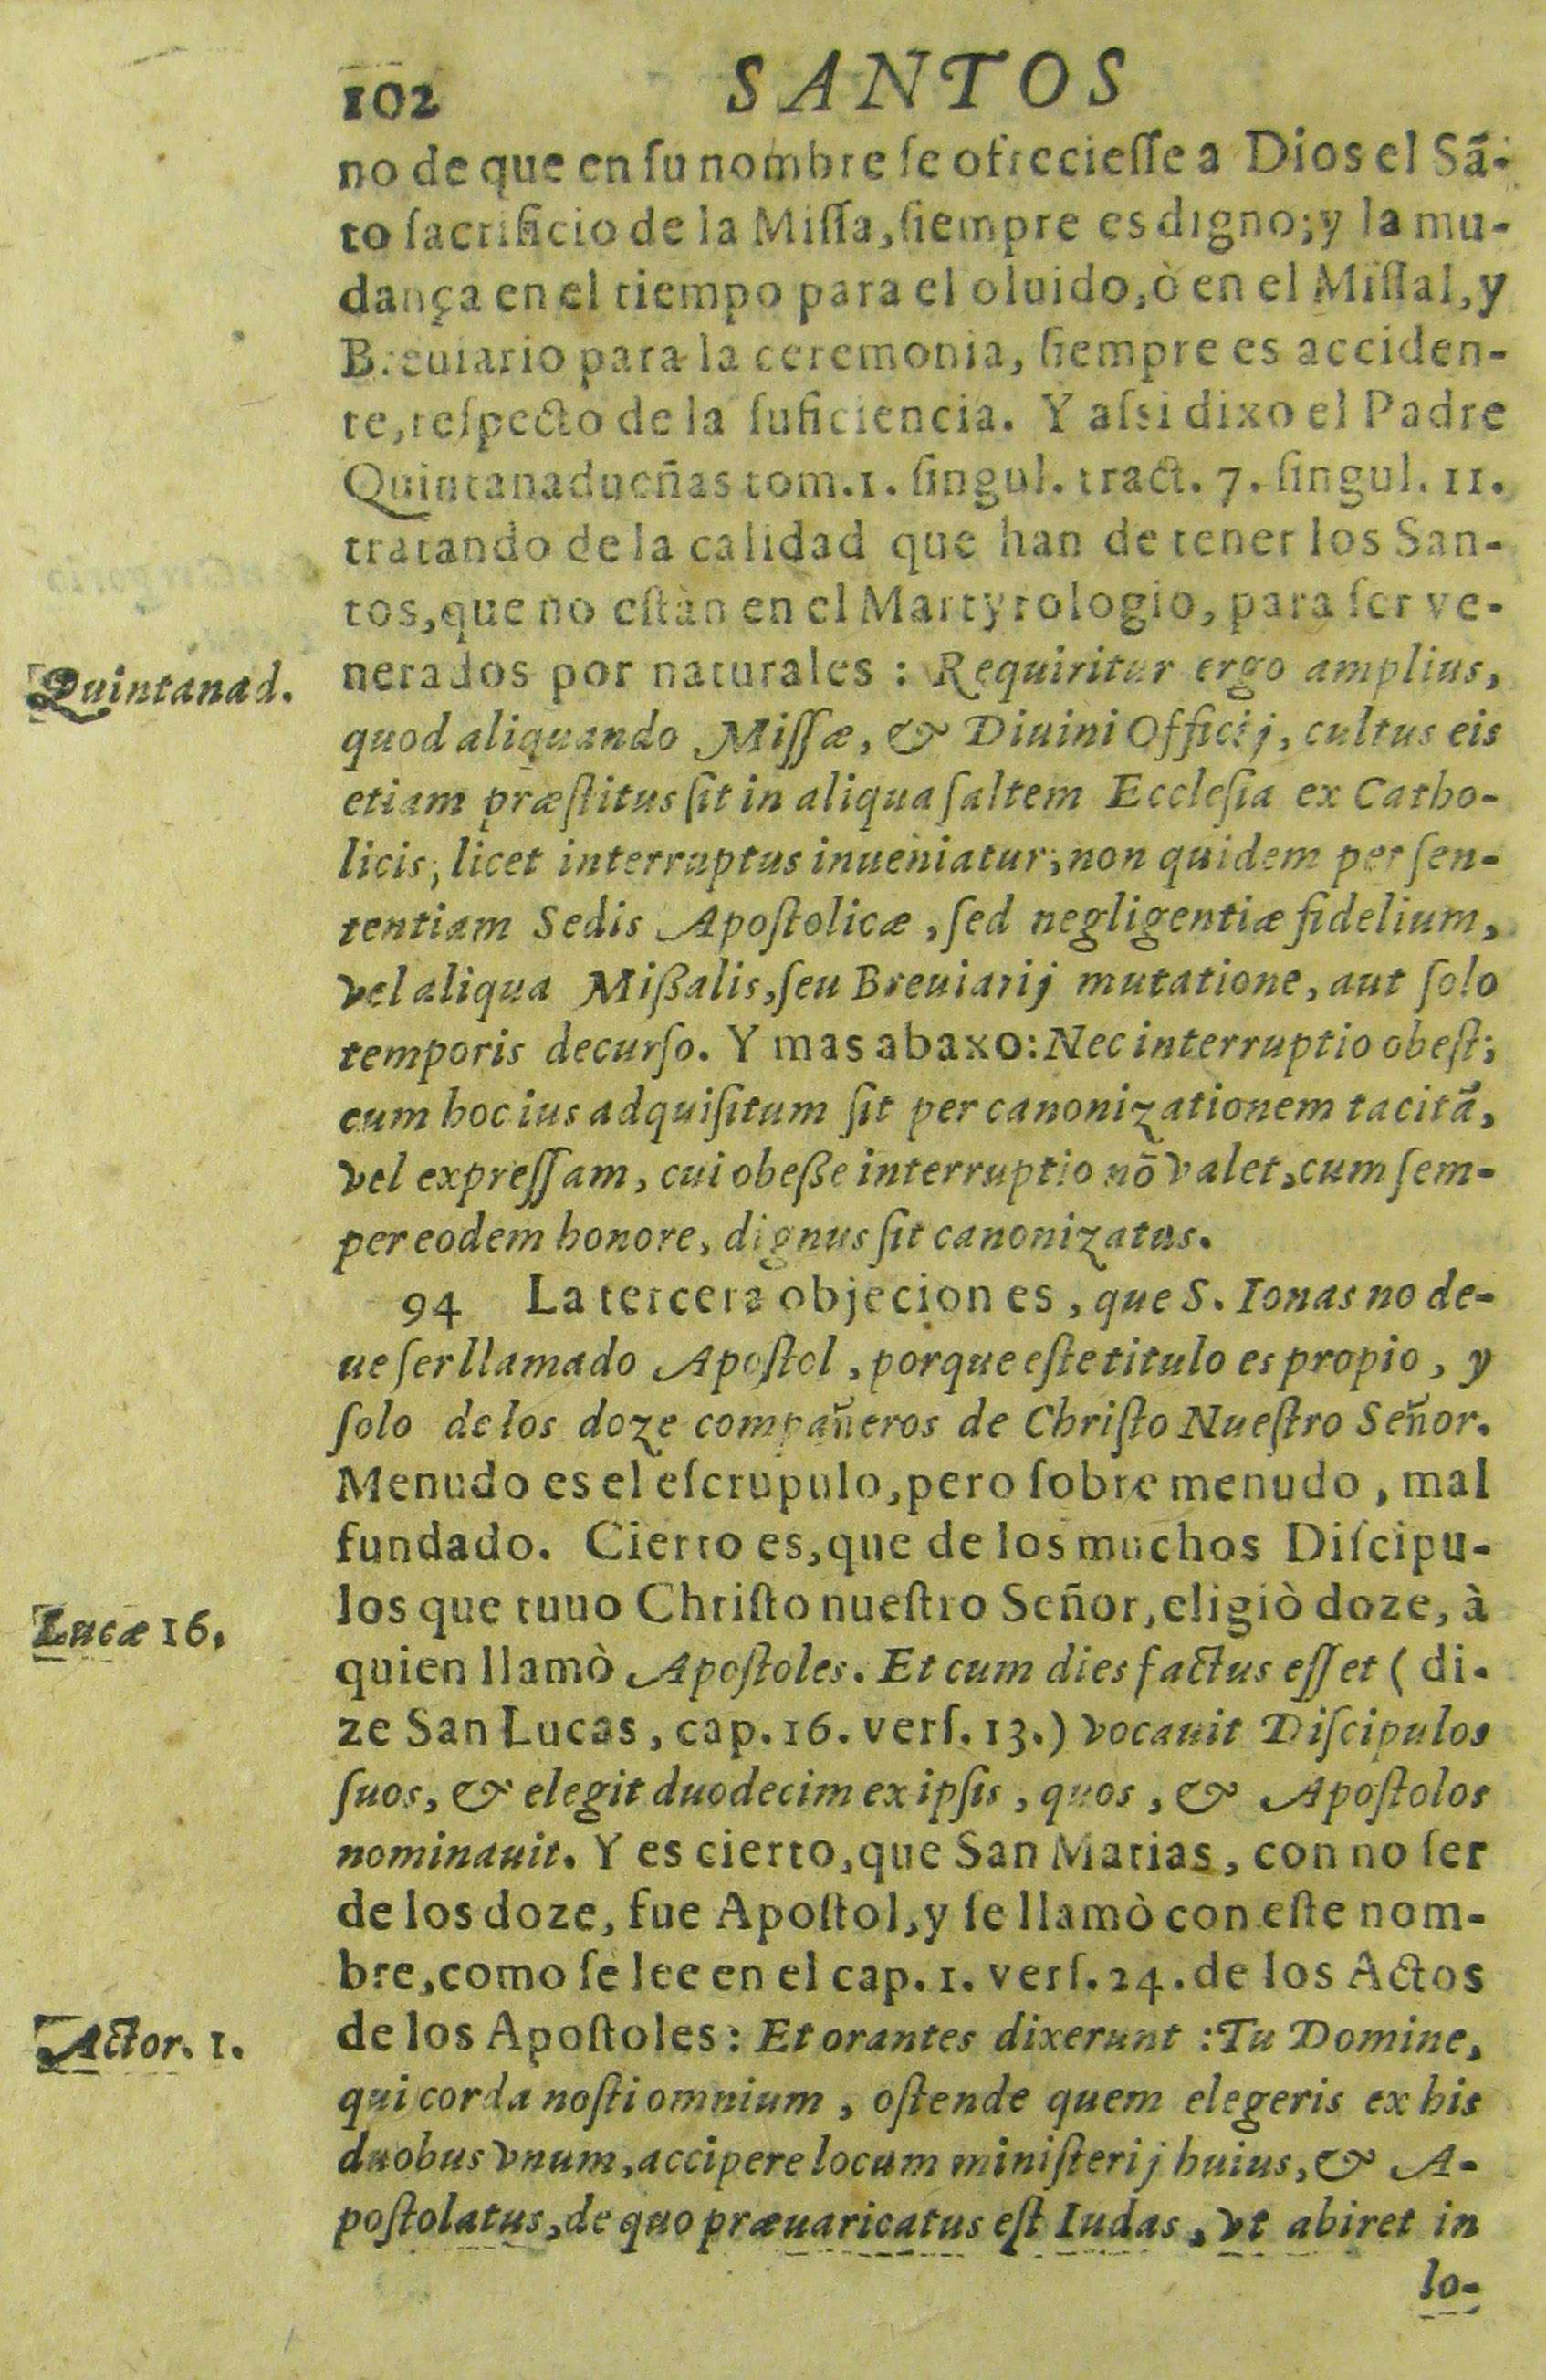 102 SANTOS
no de que en ſu nombre ſe ofrecieſſe a Dios el Sã-
to ſacrificio de la Miſſa, ſiempre es digno; y la mu-
dança en el tiempo para el oluido, ò en el Miſſal, y
Breuiario para la ceremonia, ſiempre es acciden-
te, reſpecto de la ſuficiencia. Y aſsi dixo el Padre
Quintanadueñas tom. 1. ſingul. tract. 7. ſingul. 11.
tratando de la calidad que han de tener los San-
tos, que no eſtàn en el Martyrologio, para ſer ve-
Quintanad.
nerados por naturales : Requiritur ergo amplius,
quod aliquando Miſſæ, & Diuini Officij, cultus eis
etiam præſtitus ſit in aliqua ſaltem Eccleſia ex Catho-
licis, licet interruptus inueniatur; non quidem per ſen-
tentiam Sedis Apoſtolicæ, ſed negligentiæ fidelium,
vel aliqua Mißalis, ſeu Breuiarij mutatione, aut ſolo
temporis decurſo. Y mas abaxo: Nec interruptio obeſt;
cum hoc ius adquiſitum ſit per canonizationem tacitã,
vel expreſſam, cui obeße interruptio nõ valet, cum ſem-
per eodem honore, dignus ſit canonizatus.
94 La tercera objecion es, que S. Ionas no de-
ue ſer llamado Apoſtol, porque eſte titulo es propio, y
ſolo de los doze compañeros de Chriſto Nueſtro Señor.
Menudo es el eſcrupulo, pero ſobre menudo, mal
fundado. Cierto es, que de los muchos Diſcipu-
los que tuuo Chriſto nueſtro Señor, eligiò doze, à
Lucæ 16.
quien llamò Apoſtoles. Et cum dies factus eſſet ( di-
ze San Lucas, cap. 16. verſ. 13.) vocauit Diſcipulos
ſuos, & elegit duodecim ex ipſis, quos, & Apoſtolos
nominauit. Y es cierto, que San Matias, con no ſer
de los doze, fue Apoſtol, y ſe llamò con eſte nom-
bre, como ſe lee en el cap. 1. verſ. 24. de los Actos
Actor. 1.
de los Apoſtoles: Et orantes dixerunt : Tu Domine,
qui corda noſti omnium, oſtende quem elegeris ex his
duobus vnum, accipere locum miniſterij huius, & A-
poſtolatus, de quo præuaricatus eſt Iudas, vt abiret in
lo-